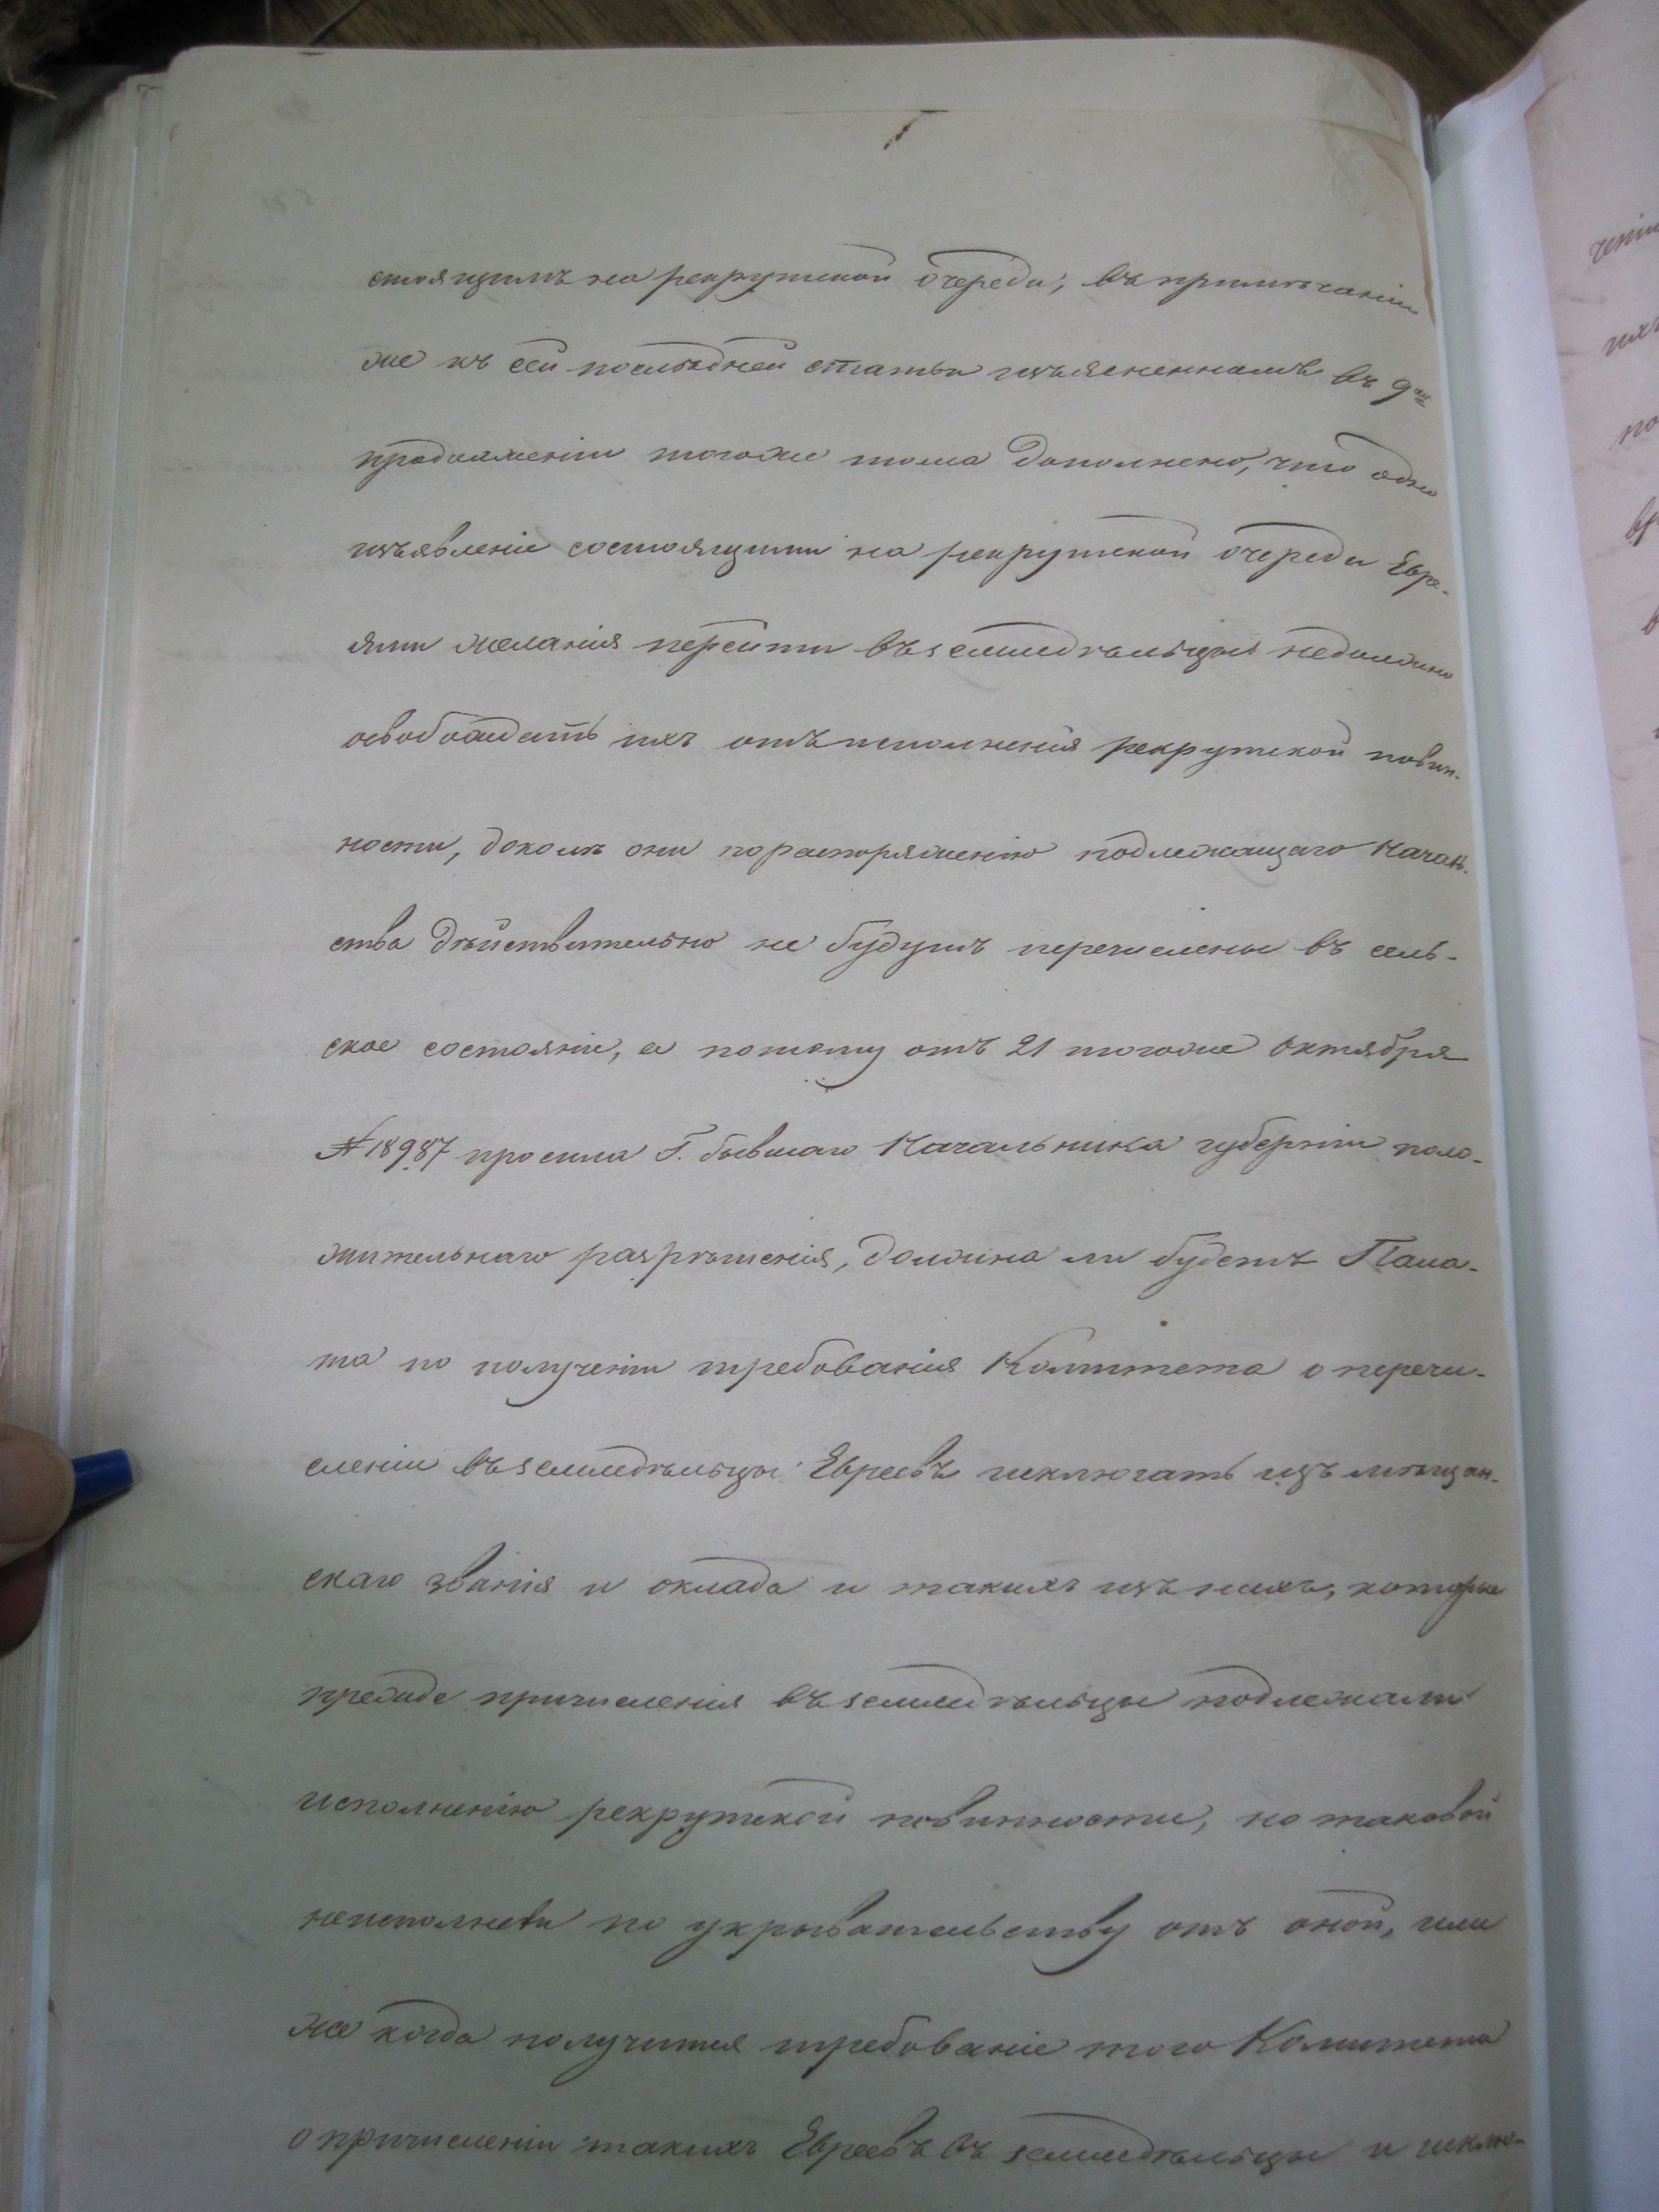 стоящимъ на рекрутской очереди; въ примѣчаніи
же къ сей послѣдней статьи изъясненномъ въ 9мъ
продолженіи тогоже тома дополнено, что одно
изъявленіе состоящими на рекрутской очереди Евре-
ями желанія перейти въ земледѣльцы недолжно
освобождать ихъ отъ исполненія рекрутской повин-
ности, доколѣ они по распоряженію подлежащаго Началь-
ства дѣйствительно не будутъ перечислены въ сель-
ское состояніе, а потому отъ 21 тогоже Октября
№ 18987 просила Г. бывшаго Начальника губерніи поло-
жительнаго разрѣшенія, должна ли будетъ Пала-
та по полученіи требованія Комитета о перечи-
сленіи въ земледѣльцы Евреевъ исключать изъ мѣщан-
скаго званія и оклада и такихъ изъ нихъ, которые
прежде причисленія въ земледѣльцы подлежали
исполненію рекрутской повинности, но таковой
неисполнели по укрывательству отъ оной, или
же когда получится требованіе того Комитета
о причисленіи такихъ Евреевъ въ земледѣльцы и исклю-